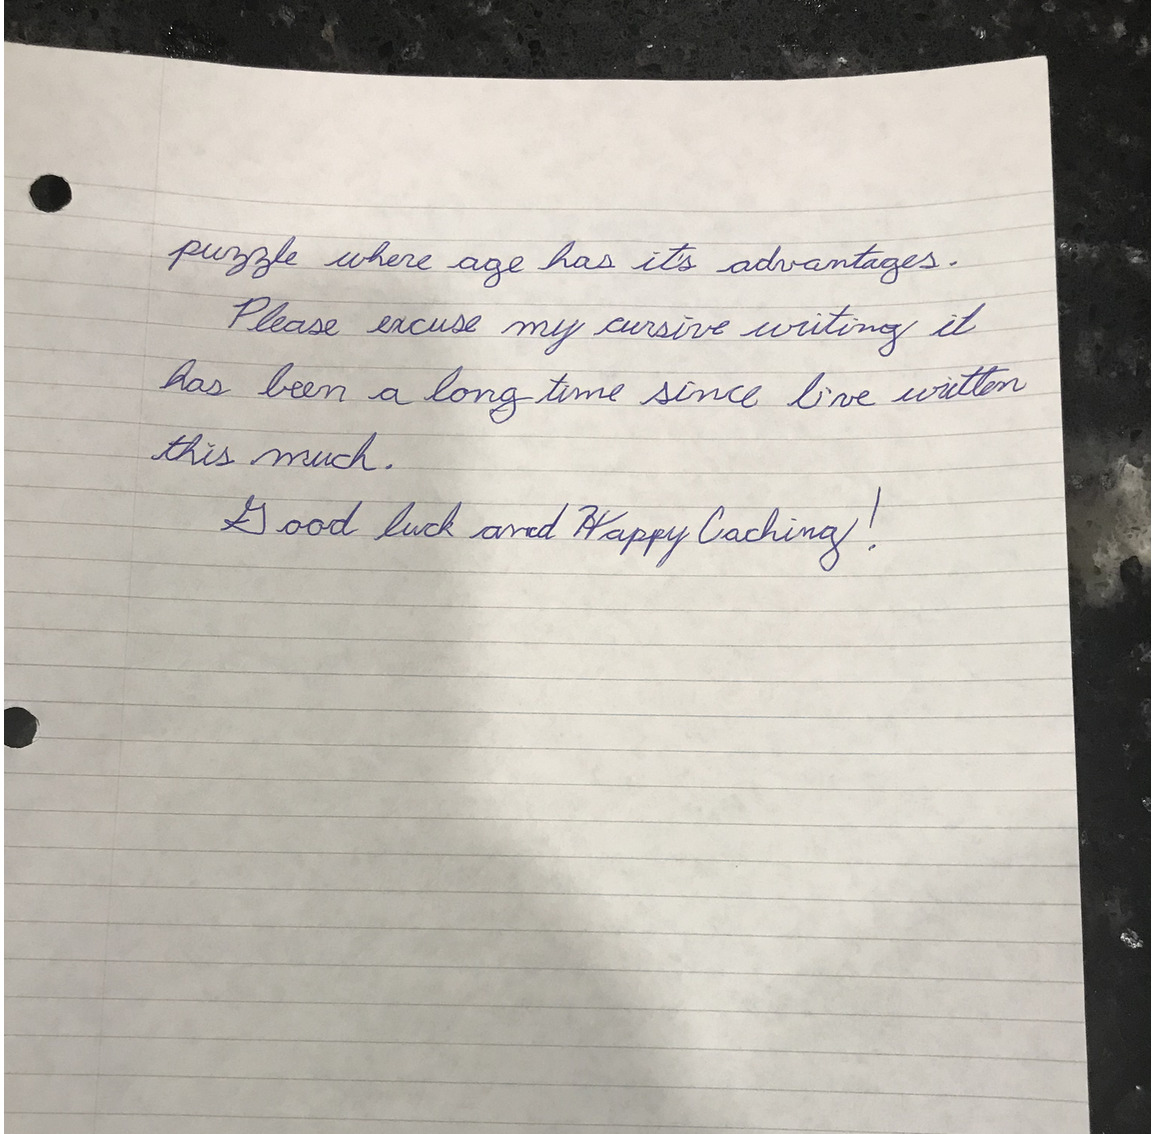 puzzle where age has it's advantages.
Please excuse my cursive writing it
has been a long time since I've written
this much.
Good luck and Happy Caching!